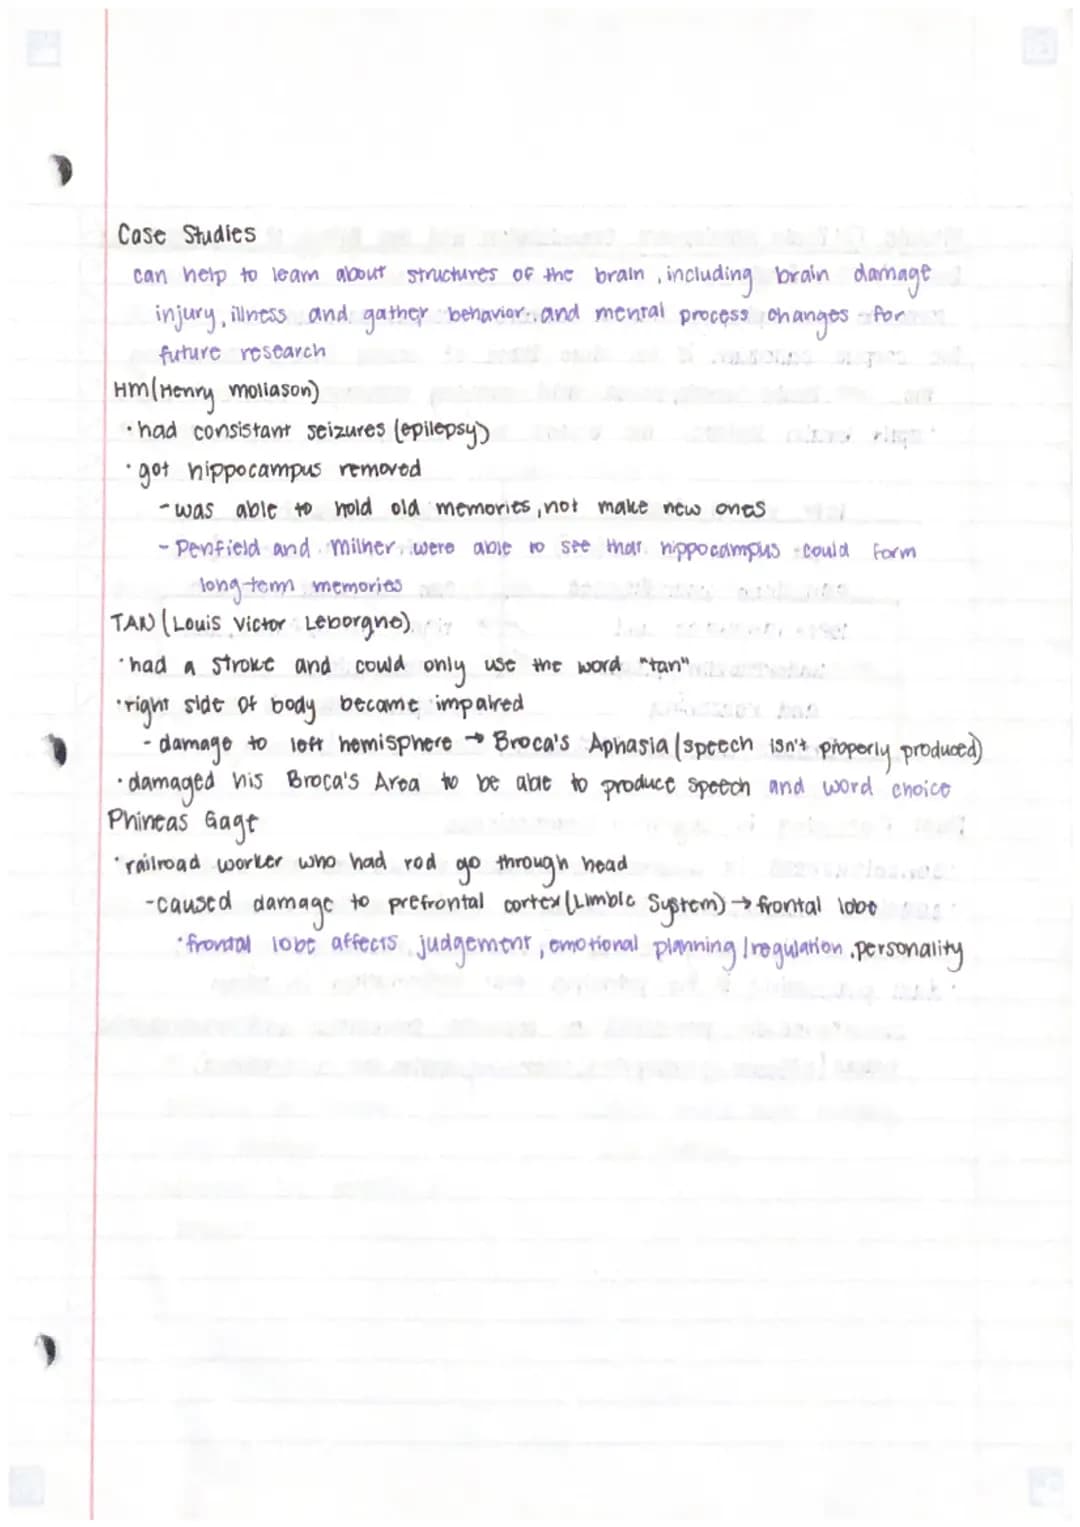 Case Studies
can help to learn about structures of the brain, including brain damage
injury, illness and gather behavior and mental process changes for
future research
HM (Henry moliason)
• had consistant seizures (epilepsy)
• got hippocampus removed
- was able to hold old memories, not make new ones
- Penfield and Milner were able to see that hippocampus could form
long-term memories
TAN (Louis Victor Leborgne)
• had a stroke and could only use the word "tan"
• right side of body became impaired
- damage to left hemisphere → Broca's Aphasia (speech isn't properly produced)
• damaged his Broca's Area to be able to produce speech and word choice
Phineas Gage
• railroad worker who had rod go through head
- caused damage to prefrontal cortex (Limbic System) → frontal lobe
• frontal lobe affects judgement, emotional planning / regulation, personality